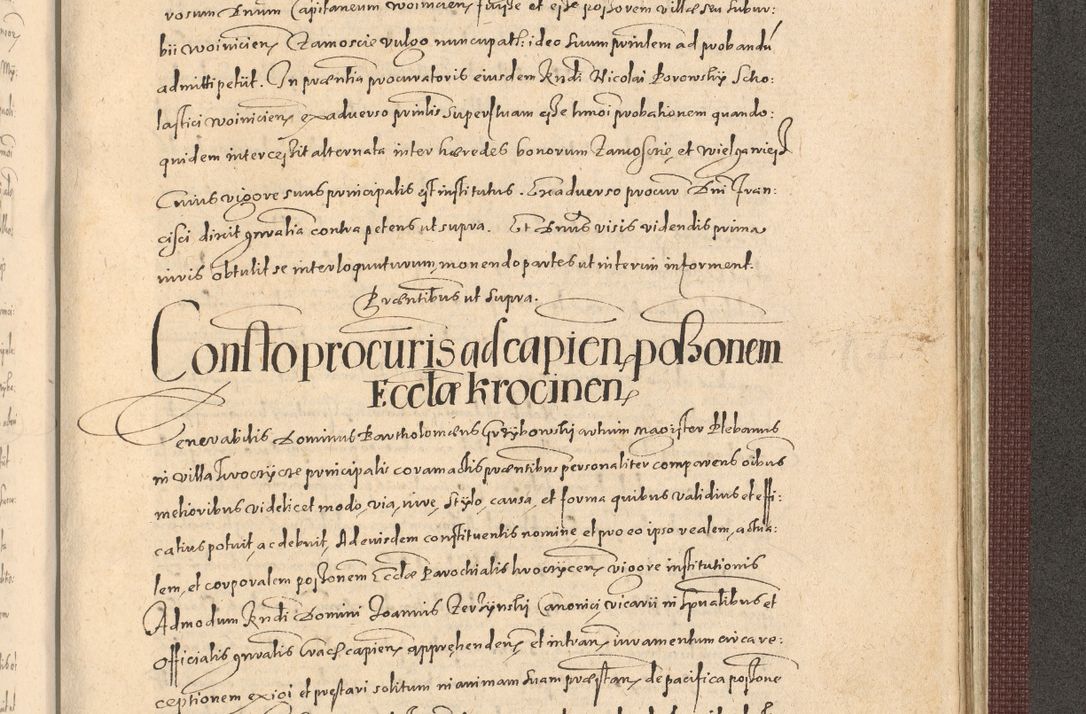 rosum Dnum Capitaneum woinicien, fuisse et esse possorem villæ seu subur:
bii woinicien, Zamoscie vulgo nuncupatt: ideo suum prinlem ad probandū
admitti petiit. In præntia procuratoris eiusdem Rndi Nicolai Borowskÿ Scho:
lastici woinicien, ex adverso prinlis superfluam esse hmoi probationem quando:
quidem intercessit alternata inter hæredes bonorum Zamoscie, et Wielga wies
Cuius vigore suus principalis est institutus. Ex adverso procur Dni Fran:
cisci dixit gnralia contra petens ut supra. Et Dnus visis videndis prima
iuris obtulit se interloquuturum, monendo partes ut interim informent.
Præntibus ut supra.
Constto procuris ad capien, possonem
Ecclæ Krocinen,
Venerabilis Dominus Bartholomæus Grzÿbowskj artium magister Plebanus
in villa Kroczÿcze principalis coram actis præntibus personaliter comparens oibus
melioribus videlicet modo, via, iure, stÿlo, causa, et forma quibus validius et effi:
catius potuit, ac debuit, Ad eiusdem constituentis nomine et pro eo ipso realem, actua:
lem, et corporalem possonem Ecclæ Parochialis kroczÿcen, vigore institutionis
Admodum Rndi Domini Joannis Zerzÿnskj Canonici vicarii in spualibus et
Officialis gnralis Crac, capien, apprehenden, et intran, iuramentum circa re:
ceptionem exigi et prestari solitum in animam suam præstan, de pacifica possone